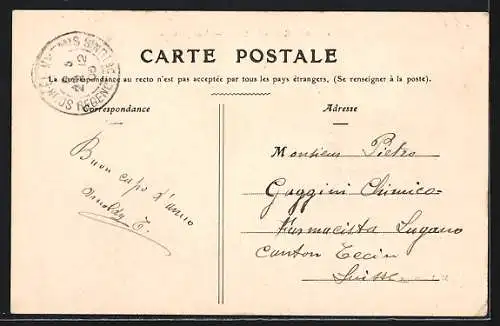 CARTE POSTALE
La correspondance au recto n'est pas acceptée par tous les pays étrangers, (Se renseigner à la poste).
Correspondance
Buon capo d'anno
Adresse
Monsieur Pietro
Gaggini Chimico-
Farmacista Lugano
Canton Tecin
Suisse